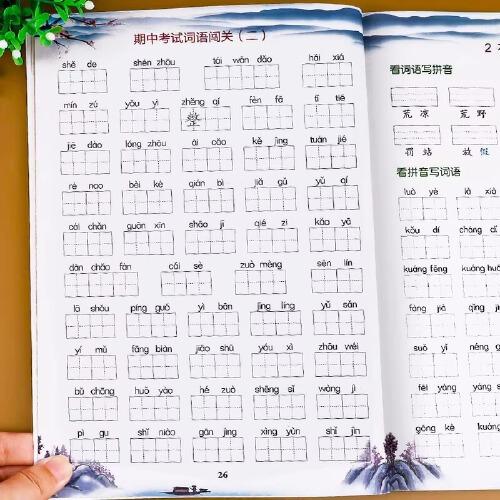 期中考试词语闯关（二）
shě de shén zhōu tái wān dǎo hǎi xiá
mín zú yòu yì zhěng qí fèn fā tǐ tiē
整
jiē dào lóng zhōu ài cǎo kě jìng tuán jié
rè nao bèi kè qián bì jiǎ gǔ yǔ qí
cái chǎn guān xīn shāo jī qié zi kǎo yā
dàn chǎo fàn cǎi sè zuò mèng sēn lín
lā shǒu píng guǒ yì bān jīng líng yǔ sǎn
yí mǔ fāng biàn jiāo shū yóu xì zhōu wéi
bǔ chōng huǒ yào hé zuò shēng sǐ wàng jì
pì gu shǐ niào gān jìng xìng yùn shī jīn
26
2
看词语写拼音
荒凉 荒野
罚站 放假
看拼音写词语
luò yè là xi
kǒu dī chàng dí
kuáng fēng kuáng
yóu xì yáng
suǒ yǐ néng
fēi yáng yáng
gōng kè kuáng